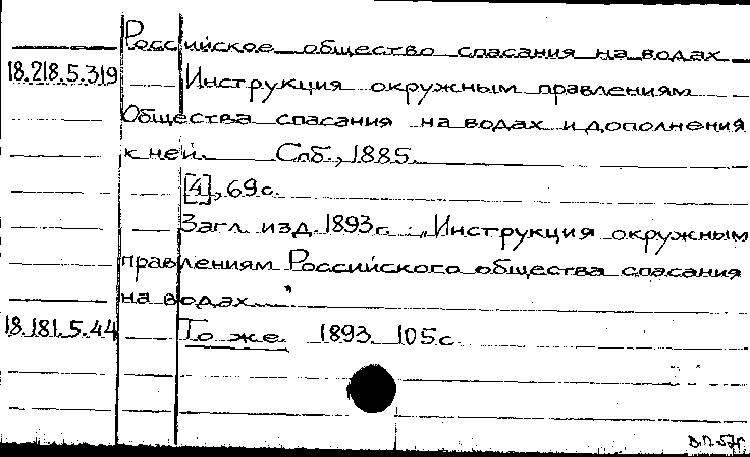 Российское общество спасания на водах
18.218.5.319 Инструкция окружным правлениям
Общества спасания на водах и дополнения
к ней. Спб., 1885.
[4], 69 с.
Загл. изд. 1893 г. „Инструкция окружным
правлениям Российского общества спасания
на водах"
18.181.5.44 То же. 1893. 105 с.